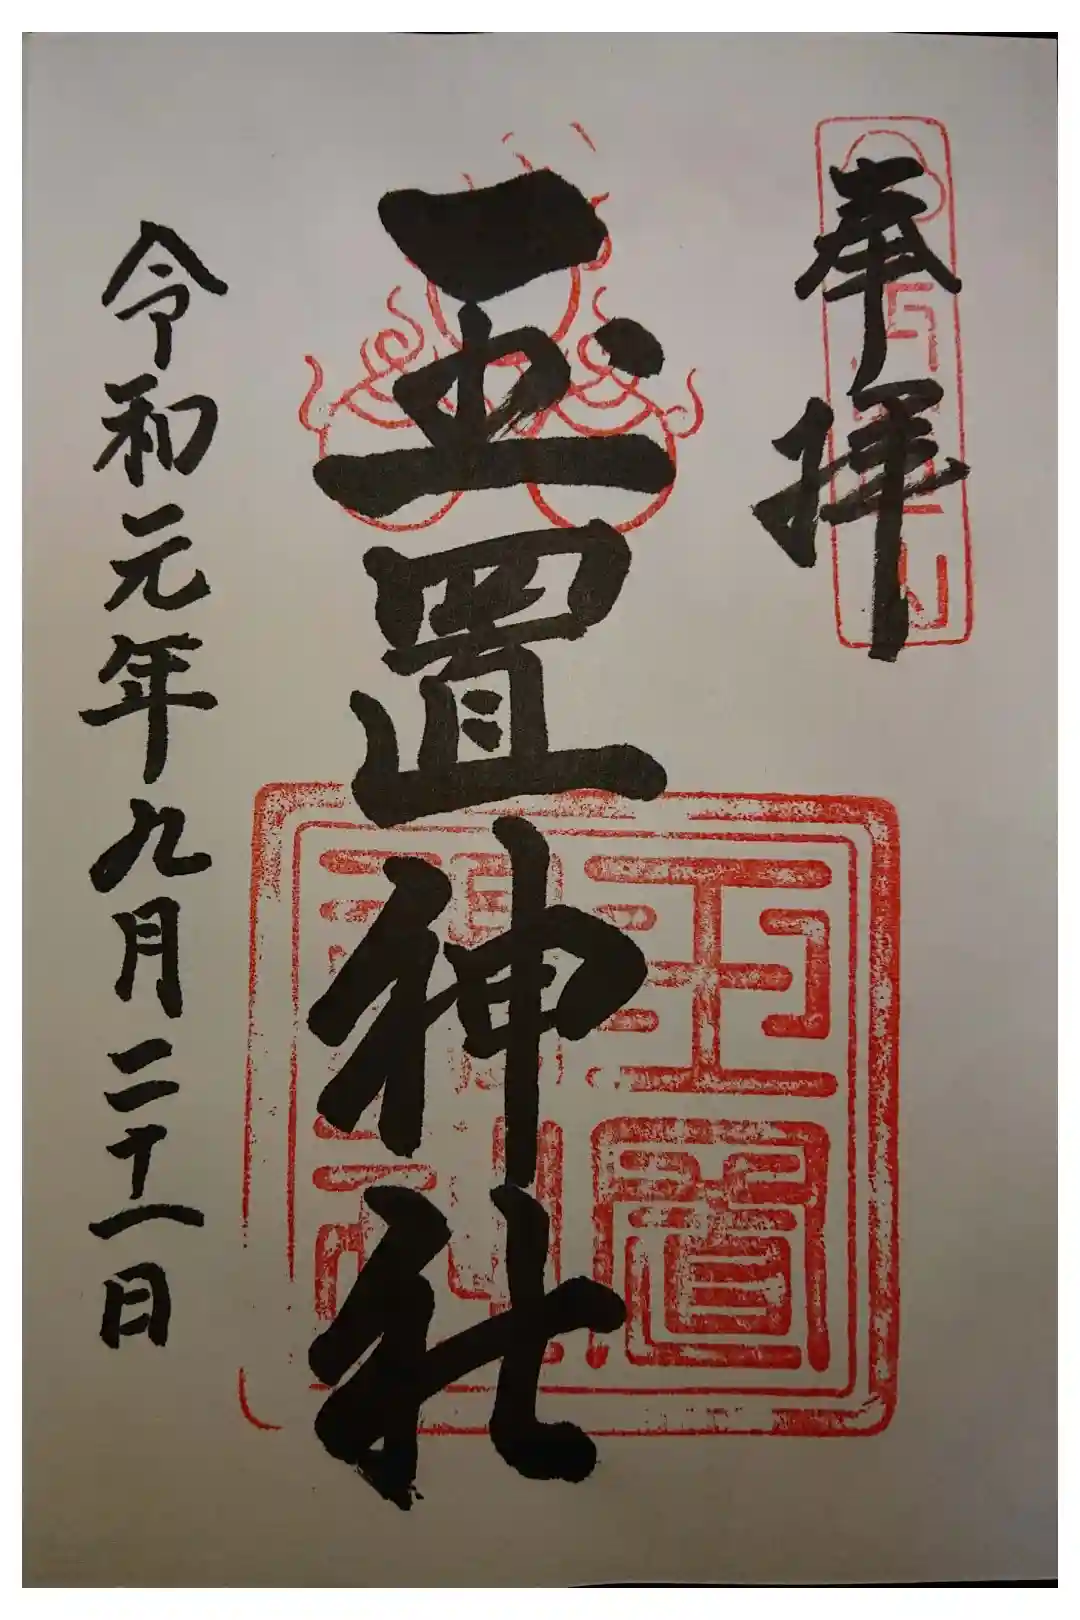 奉拝
玉置神社
令和元年九月二十一日
玉置神社